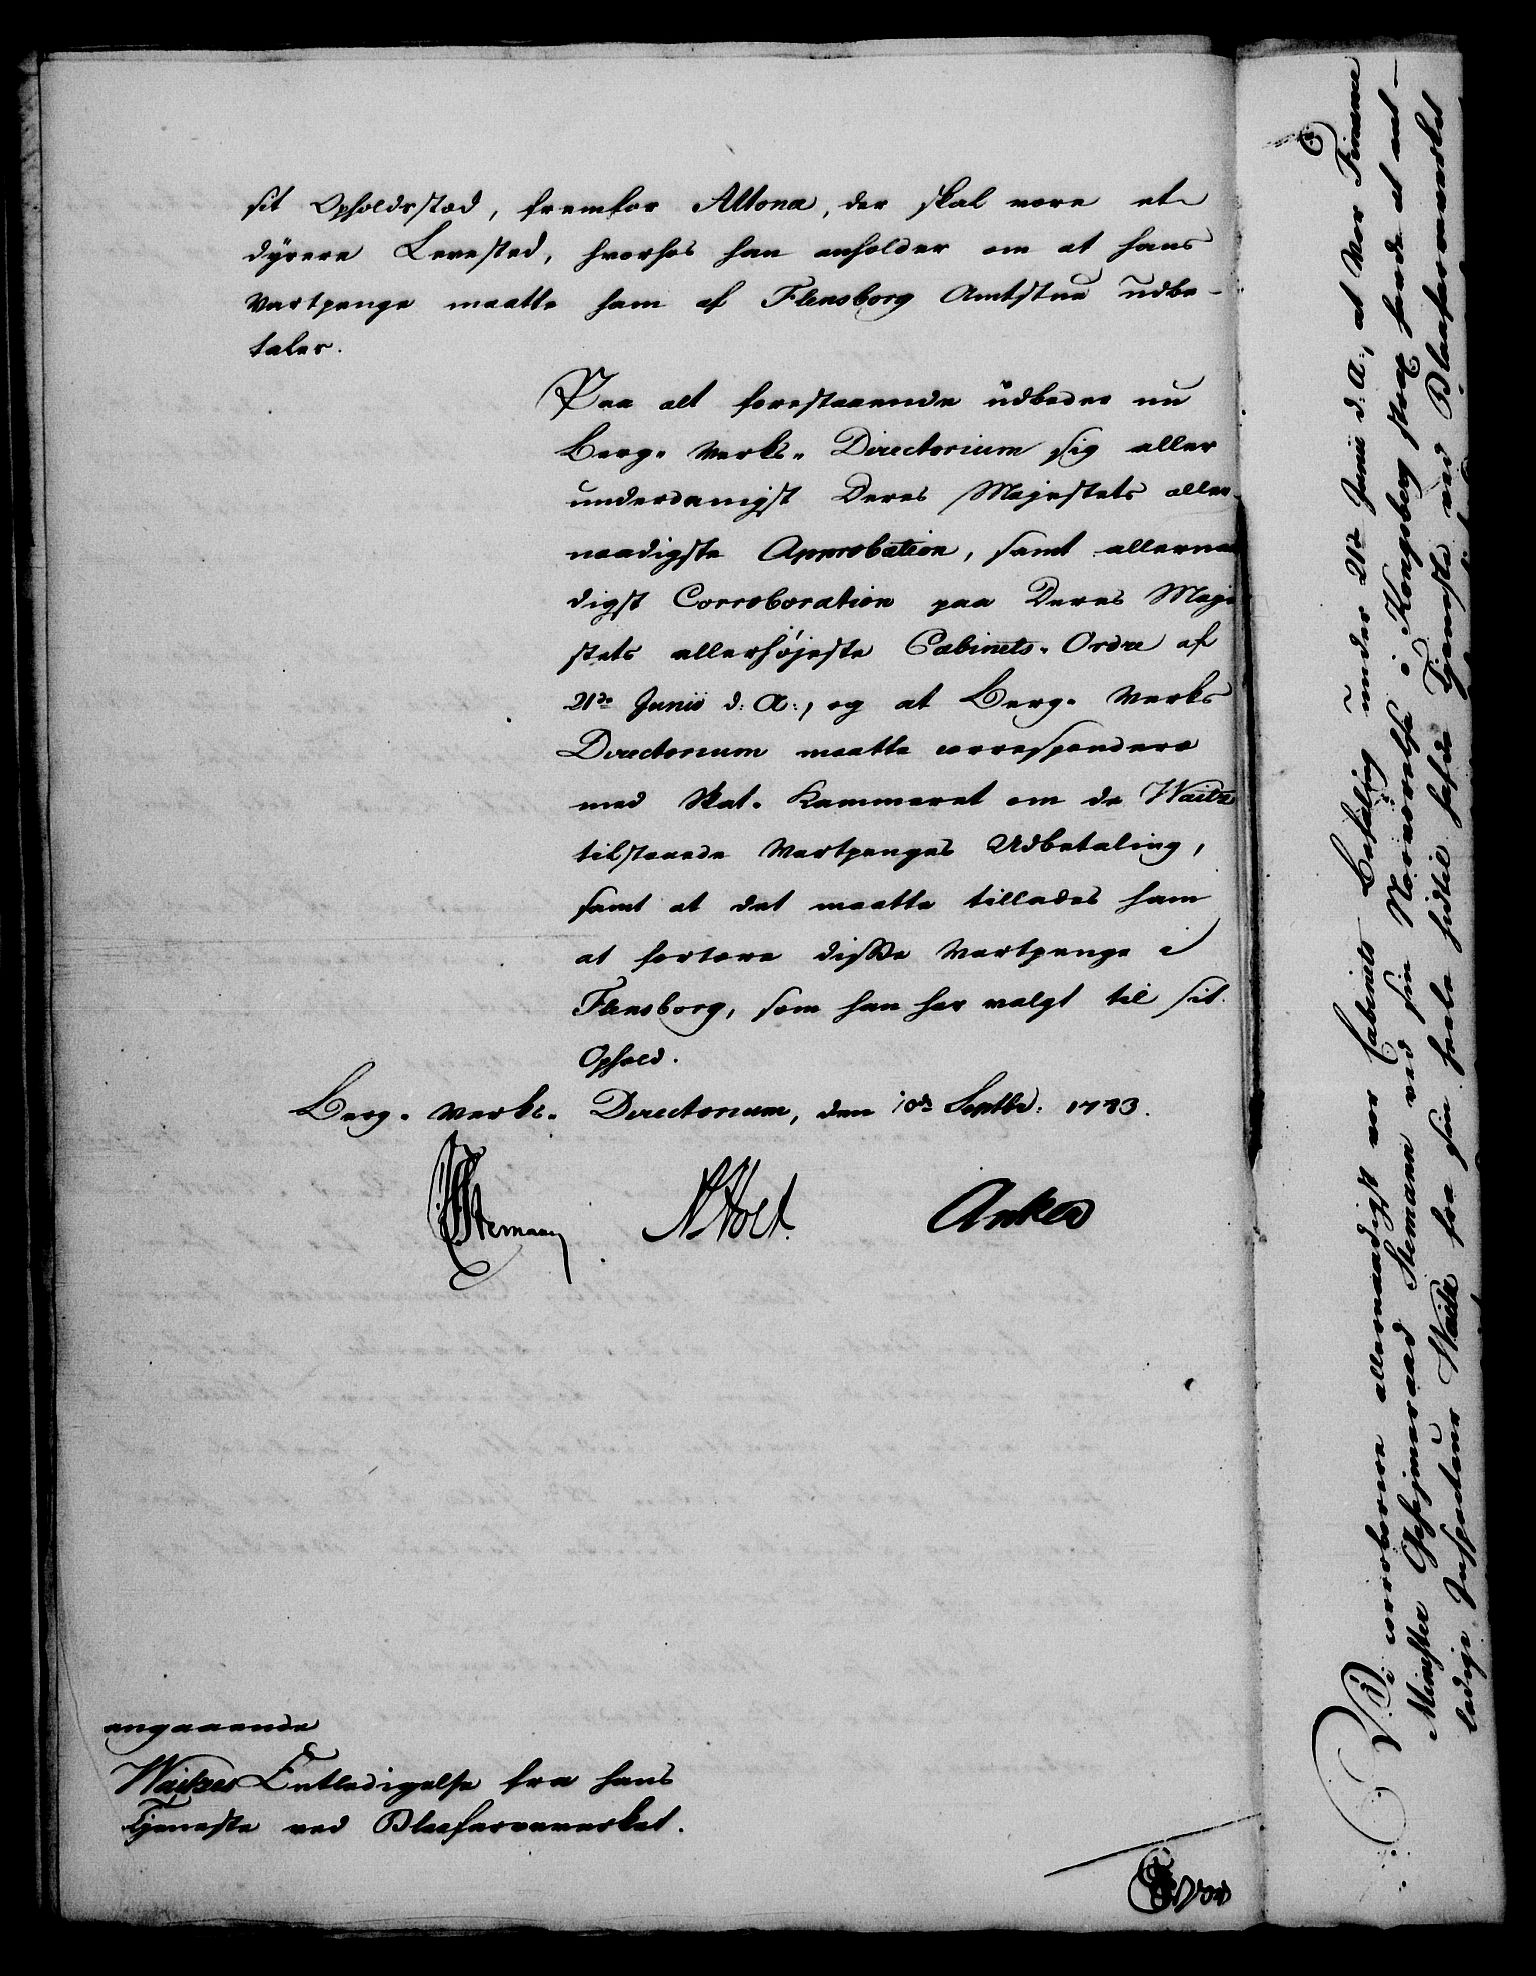 sit Opholdsstæd, fremfor Altona, der skal være et
dyrere Levested, hvorhos han anholder om at hans
Vartpenge maatte ham af Flensborg Amtstue udbe-
tales.
Paa alt forestaaende udbeder nu
Berg- Verks- Directorium sig aller
underdanigst Deres Majestets aller-
naadigste Approbation, samt allernaa
digst Corroboration paa Deres Maje
stets allerhøjeste Cabinets- Ordre af
21de Junii d: A:, og at Berg- Verks
Directorium maatte correspondere
med Skat- Kammeret om de Waitz
tilstaaede Vartpenges Udbetaling,
samt at det maatte tillades ham
at fortære disse Vartpenge i
Flensborg, som han har valgt til sit
Ophold.
Berg- Verks- Directorium, den 10de Septbr: 1783.
Stemann Holt Anker
angaaende
Waitzes Entledigelse fra hans
Tjeneste ved Blaafarveverket.
Vi corroborere allernaadigst vor Cabinets Befaling under 21de Junii d: A:, at Vor Finance
Minister Gehejmeraad Stemann ved sin Nærværelse i Kongsberg strax havde at ent-
ledige Inspecteur Waitz fra sin heele hidtil hafde Tjeneste ved Blaafarveverket